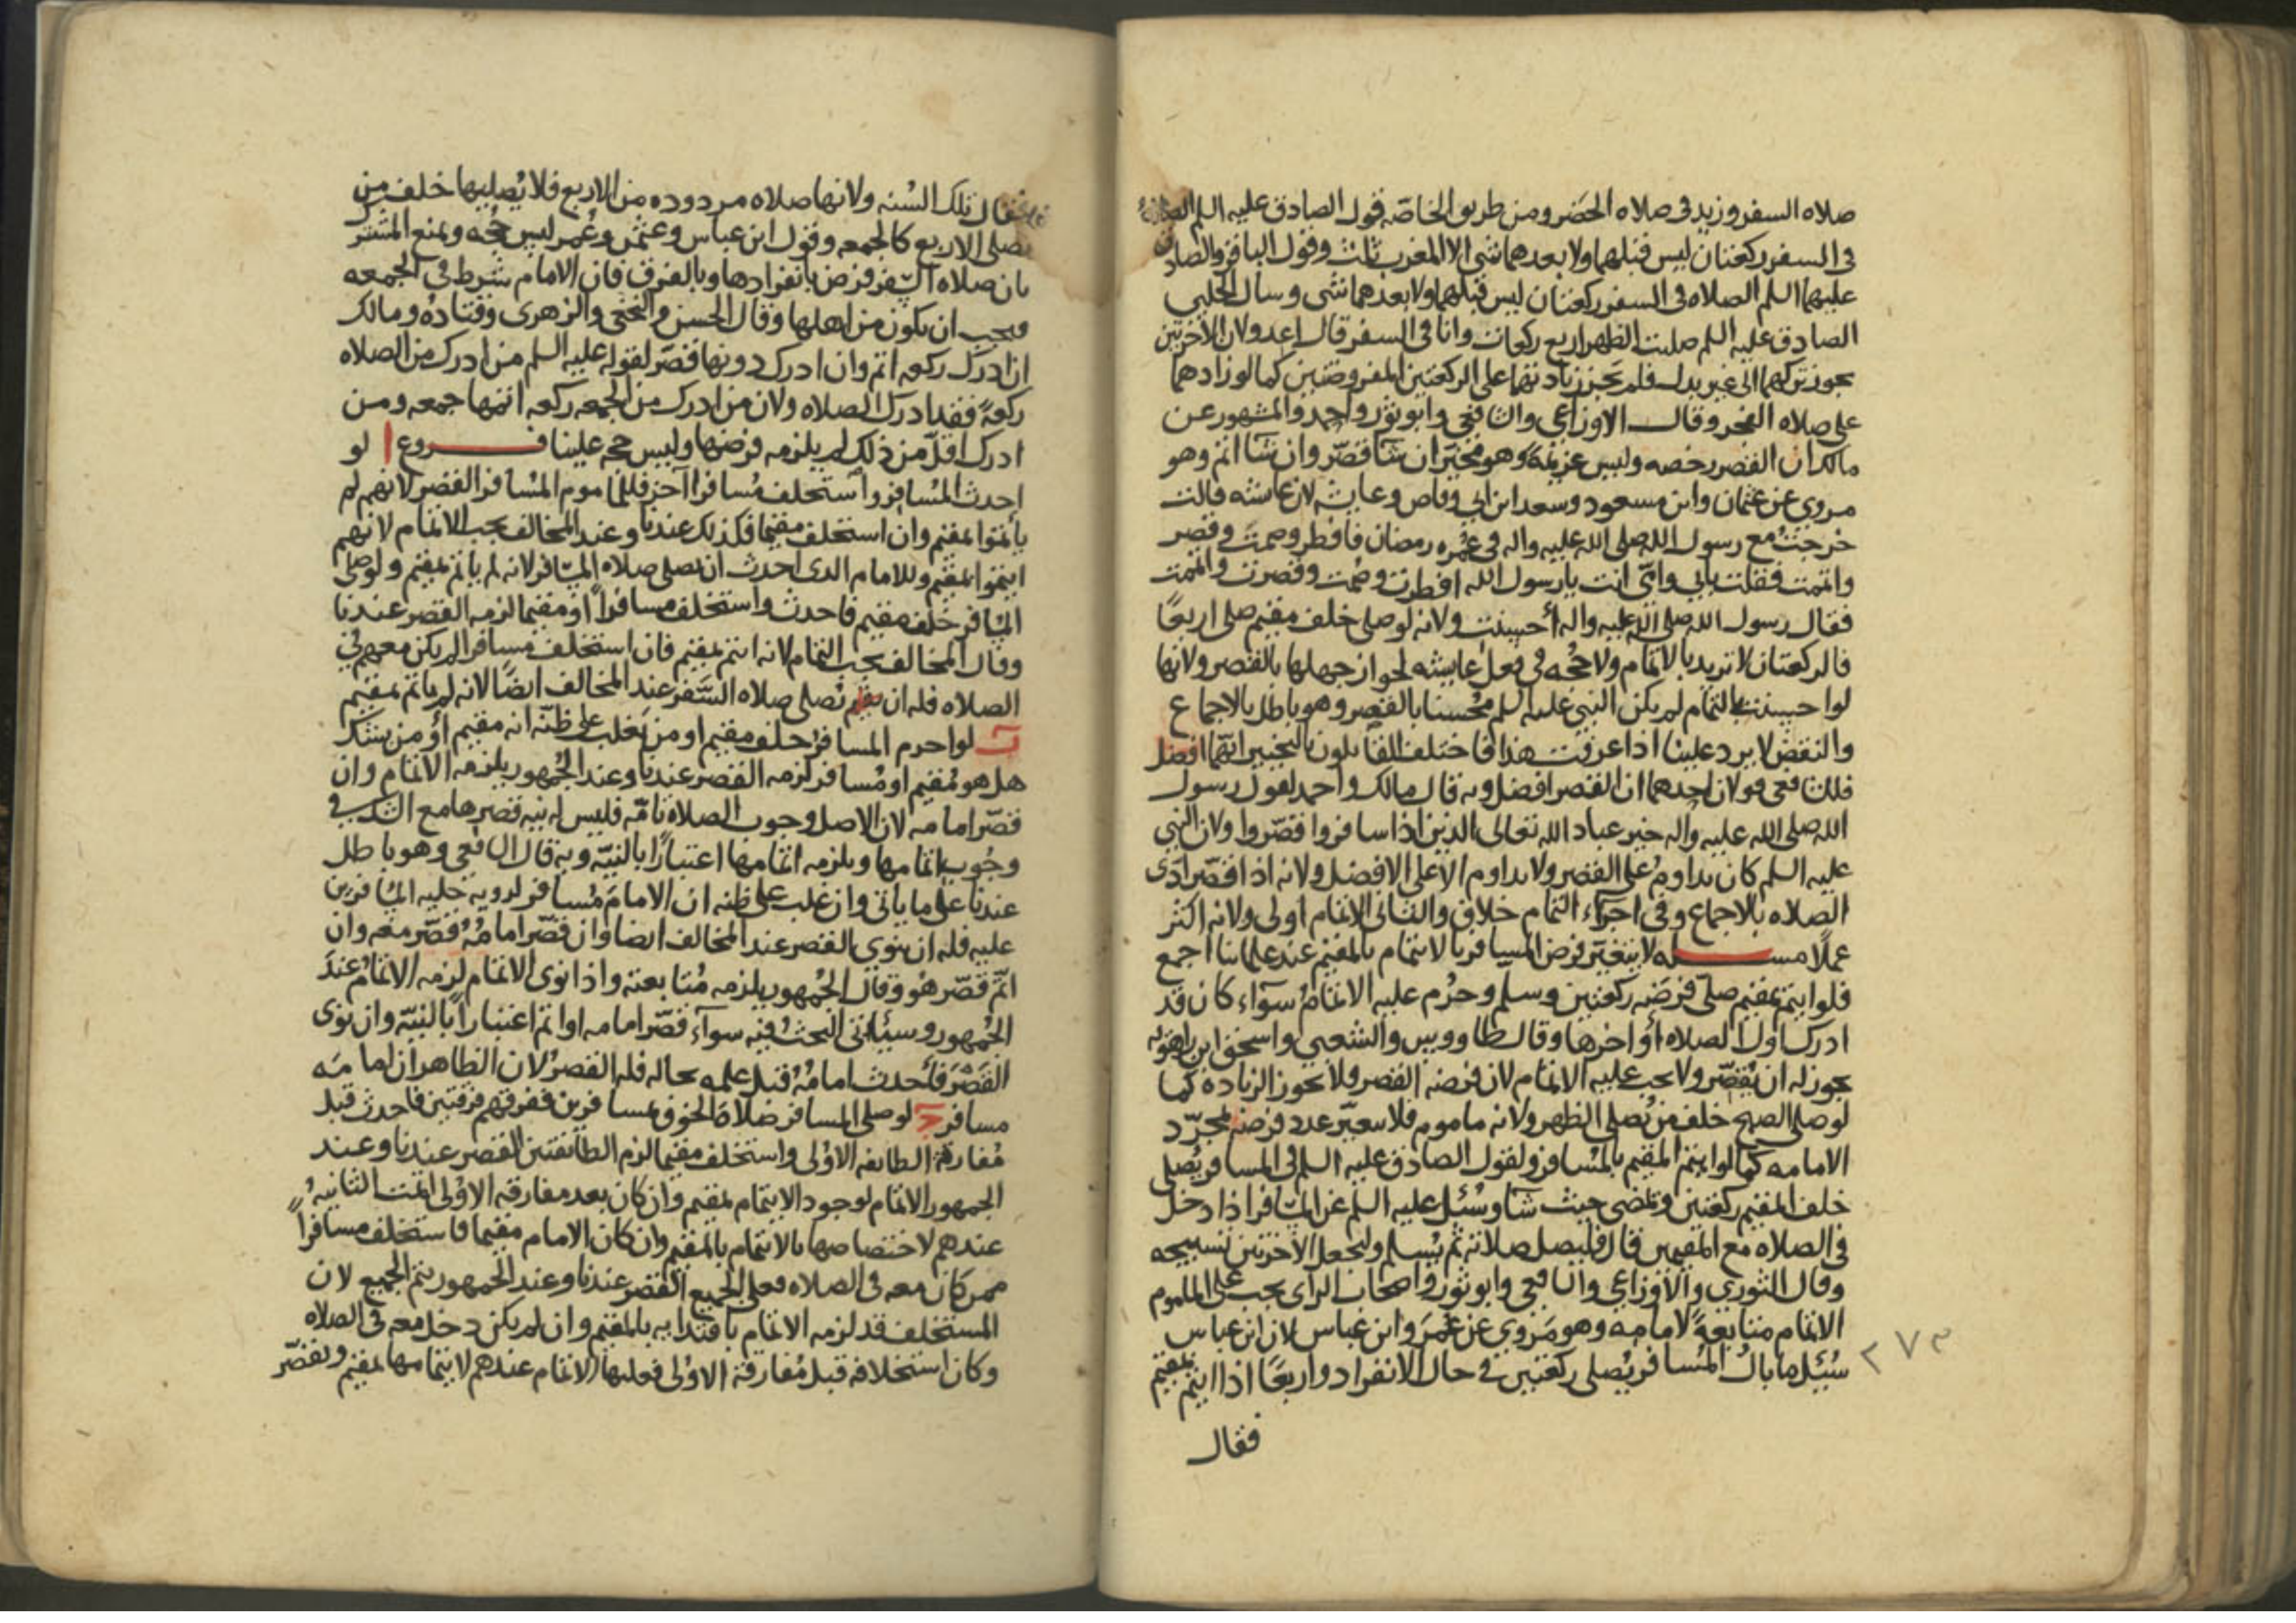 صلاه السفر وزيد في صلاه الحضر ومن طريق الخاصّه قول الصادق عليه السلم الصلاة
في السفر ركعتان ليس قبلهما ولا بعدهما شي الا المغرب ثلث وقول الباقر والصادق
عليهما السلم الصلاه في السفر ركعتان ليس قبلهما ولا بعدهما شي وسأل الحلبي
الصادق عليه السلم صليت الظهر اربع ركعات وانا في السفر قال اعد ولان الاخرتين
يجوز تركهما الى غير بدل فلم تجز زيادتهما على الركعتين المفروضتين كما لو زادهما
على صلاه الفجر وقال الاوزاعي والشافعي وابو ثور واحمد والمشهور عن
مالك ان القصر رخصه وليس عزيمةً وهو مخيّر ان شآ قصّر وان شآ اتم وهو
مروي عن عثمان وابن مسعود وسعد ابن ابي وقاص وعايشه لان عايشه قالت
خرجتُ مع رسول الله صلى الله عليه واله في عُمره رمضان فافطر وصمت وقصر
واتممت فقلت بابي وامّي انت يا رسول الله افطرت وصُمت وقصرت واتممت
فقال رسول الله صلى الله عليه واله أحسنت ولانه لو صلى خلف مقيم صلى اربعًا
فالركعتان لا تزيد بالايتمام ولا حجّه في فعل عايشه لجواز جهلها بالقصر ولانها
لو احسنت بالتمام لم يكن النبي عليه السلم محُسنا بالقصر وهو باطل بالاجماع
والنقض لا يرد علينا اذا عرفت هذا فاختلف القايلون بالتخيير ايّهما افضل
فللشافعي قولان احدهما ان القصر افضل وبه قال مالك واحمد لقول رسول
الله صلى الله عليه واله خير عباد الله تعالى الذين اذا سافروا قصّروا ولان النبي
عليه السلم كان يداومُ على القصر ولا يداوم الا على الافضل ولانه اذا قصّر ادّى
الصلاه بالاجماع وفي اجزآء التمام خلاف والثاني الاتمام اولى ولانه اكثر
عملًا مسـله لا يتغيّر فرض المسافر بالايتمام بالمقيم عند علماينا اجمع
فلو ايتم بمقيم صلّى فرضَه ركعتين وسلم وحرُم عليه الاتمامُ سوآء كان قد
ادرك اول الصلاه أو اخرها وقال طاووس والشعبي واسحق ابن راهويه
يجوز له ان يقصّر ولا يجب عليه الاتمام لان فرضه القصر ولا يجوز الزياده كما
لو صلى الصبح خلف من يُصلي الظهر ولانه ماموم فلا يتغيّر عدد فرضه بمجرّد
الامامه كما لو ايتم المقيم بالمُسافر ولقول الصادق عليه السلم في المسافر يُصلي
خلف المقيم ركعتين ويمضي حيث شآ وسُئل عليه السلم عن المسافر اذا دخل
في الصلاه مع المقيمين قال فليصل صلاته ثم يُسلم وليجعل الاخرتين تسبيحه
وقال الثوري والاوزاعي والشافعي وابو ثور واصحاب الرأى يجب على الماموم
الاتمام متابعةً لامامه وهو مَروي عن عُمرَ وابن عباس لان ابن عباس
سُئل ما بالُ المُسافر يُصلي ركعتين في حال الانفراد واربعًا اذا ايتم بمقيم
٢٧٣
فقال
فقال تلك السُنه ولانها صلاه مردوده من الاربع فلا يُصليها خلف من
يصلي الاربع كالجمعه وقول ابن عباس وعثمن وعُمر ليس حُجه ونمنع المشترك
بان صلاه السّفر فرض بانفرادها وبالفرق فان الامام شرط في الجمعه
فيجب ان يكون من اهلها وقال الحسن والنخعي والزهري وقتاده ومالك
ان ادرك ركعه اتم وان ادرك دونها قصّر لقوله عليه السلم من ادرك من الصلاه
ركعةً فقد ادرك الصلاه ولان من ادرك من الجمعه ركعه اتمها جمعه ومن
ادرك اقلّ من ذلك لم يلزمه فرضها وليس حجه علينا فــروع ا لو
احدث المُسافر واستخلف مُسافرا آخر فللماموم المُسافر القصر لانهم لم
يأتمّوا بمقيم وان استخلف مقيما فكذلك عندنا وعند المخالف يجب الاتمام لانهم
ايتموا بمقيم وللامام الذي احدث ان يصلي صلاه المسافر لانه لم ياتم بمقيم ولو صلى
المسافر خلف مقيم فاحدث واستخلف مسافراً او مقيما لزمه القصر عندنا
وقال المخالف يجب التمام لانه ايتم بمقيم فان استخلف مسافرا لم يكن معهم في
الصلاه فله ان يصلي صلاه السّفر عند المخالف ايضًا لانه لم ياتم بمقيم
ب لو احرم المسافرُ خلف مقيم او من يَغلب على ظنّه انه مقيم أو من يشك
هل هو مُقيم او مُسافر لزمه القصر عندنا وعند الجُمهور يلزمه الاتمام وان
قصّر امامه لان الاصل وجوب الصلاه تامّه فليس له نيه قصرها مع الشك في
وجُوب اتمامها ويلزمه اتمامها اعتبارًا بالنيّه وبه قال الشافعي وهو باطل
عندنا على ما ياتي وان غلب على ظنه ان الامامَ مُسافر لرويه حليه المسافرين
عليه فله ان ينوي القصر عند المخالف ايضا وان قصّر امامُهُ قصّر معه وان
اتمّ قصّر هُو وقال الجُمهور يلزمه مُتابعته واذا نوى الاتمام لزمه الاتمامُ عندَ
الجُمهور وسيأتي البحثُ فيه سوآء قصّر امامه او اتم اعتباراً بالنيّه وان نوى
القَصْرَ فأحدث امامُهُ قبل علمه بحاله فله القصرُ لان الظاهر ان امامَه
مسافر ج لو صلى المسافر صَلاة الخوف بمسافرين ففرقهم فرقتين فاحدث قبل
مُفارقة الطايفه الاوُلى واستخلف مقيما لزم الطايفتين القصر عندنا وعند
الجمهور الاتمام لوجود الايتمام بمقيم وان كان بعد مفارقه الاوُلى اتمت الثانيهُ
عندهم لاختصاصها بالايتمام بالمقيم وان كان الامام مقيما فاستخلف مسافراً
ممن كان معه في الصلاه فعلى الجميع القصر عندنا وعند الجمهور يتم الجميع لان
المستخلف قد لزمه الاتمام باقتدايه بالمقيم وان لم يكن دخل معه في الصلاه
وكان استخلافه قبل مُفارقه الاوُلى فعليها الاتمام عندهم لايتمامها بمقيم ويقصّر